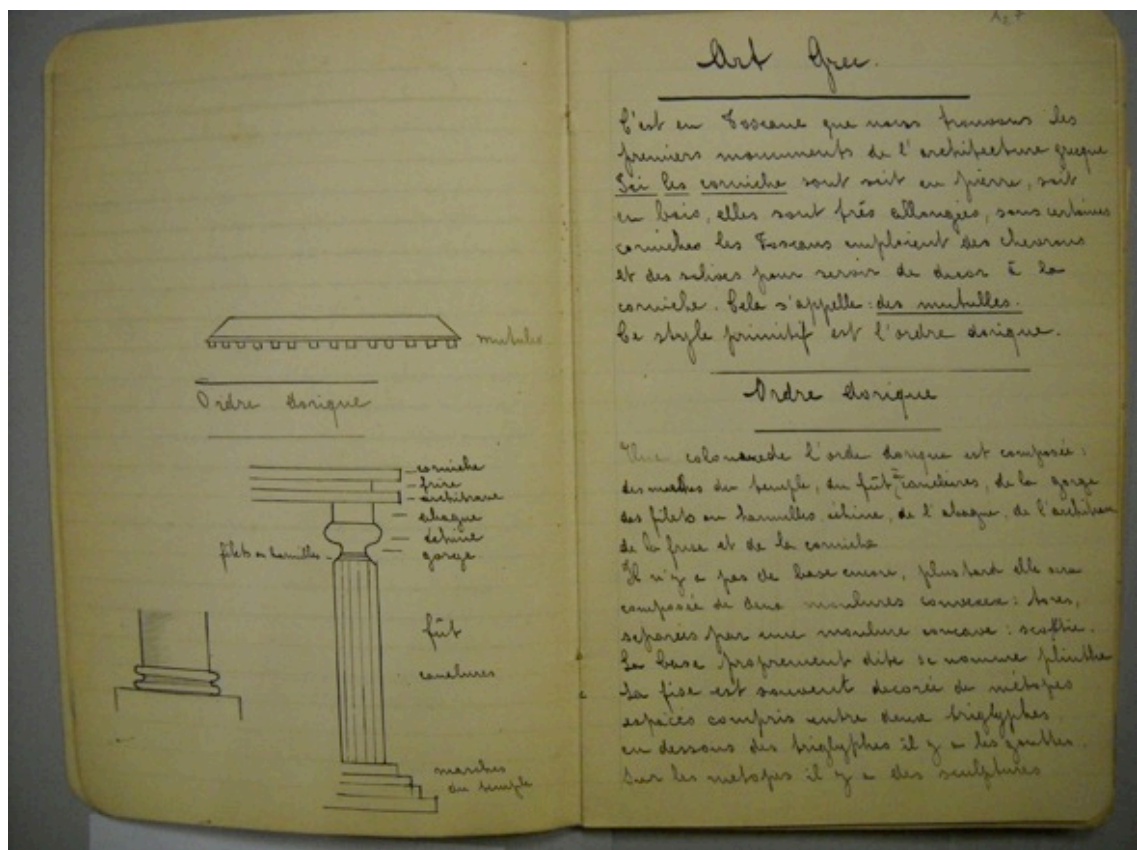 mutules
Ordre dorique
corniche
frire
architrave
abaque
échine
filets ou hamilles
gorge
fût
canelures
marches
du temple
Art Grec.
C'est en Toscane que nous trouvons les
premiers monuments de l'architecture grecque
Ici les corniche sont soit en pierre, soit
en bois, elles sont très allongées, sous certaines
corniches les Toscans emploient des chevrons
et des solives pour servir de decor à la
corniche. Cela s'appelle : des mutulles.
Ce style primitif est l'ordre dorique.
Ordre dorique
Une colonne de l'orde dorique est composée :
des marches du temple, du fût, canelures, de la gorge
des filets ou hamulles, échine, de l'abaque, de l'architrave
de la frise et de la corniche
Il n'y a pas de base encore, plus tard elle sera
composée de deux moulures convexes : tores,
separées par une moulure concave : scottie.
La base proprement dite se nomme plinthe
La fise est souvent decorée de métopes
espaces compris entre deux triglyphes
en dessous des triglyphes il y a les gouttes.
Sur les metopes il y a des sculptures